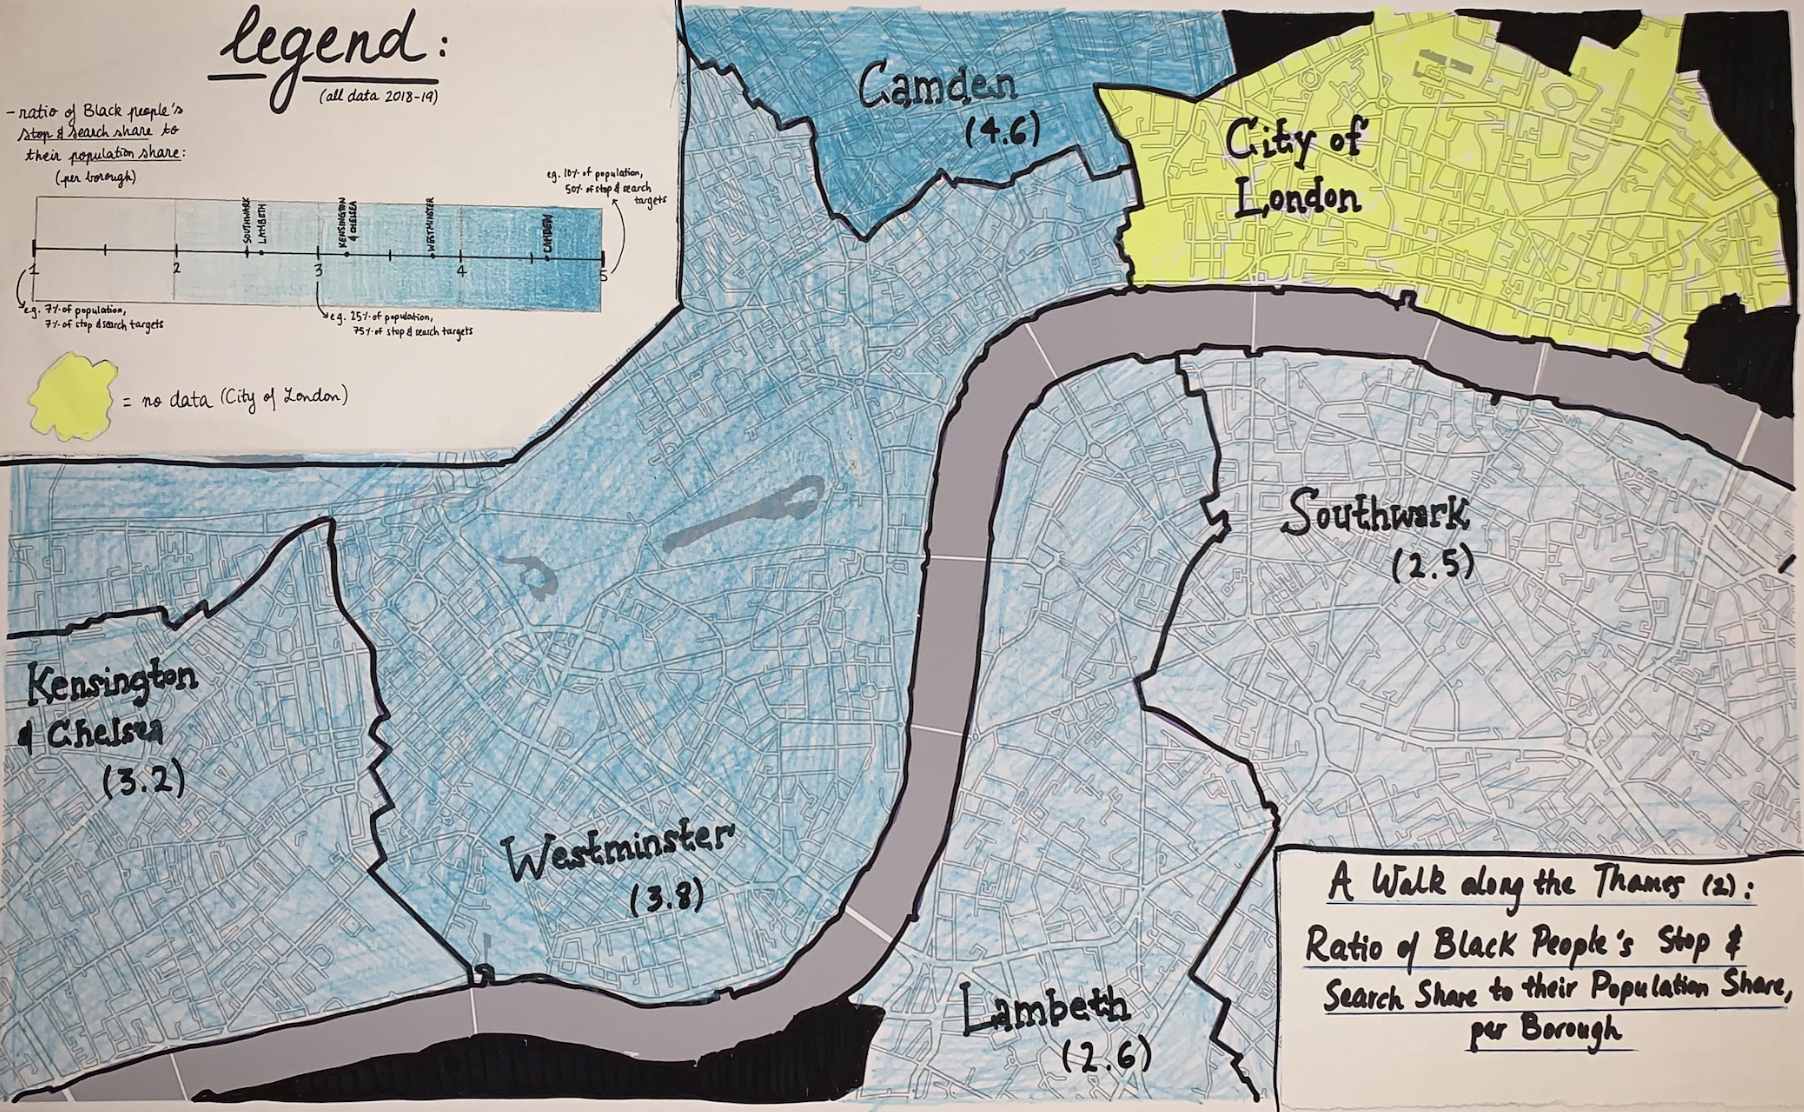 legend:
(all data 2018-19)
- ratio of Black people's
stop & search share to
their population share:
(per borough)
e.g. 10% of population,
50% of stop & search
targets
SOUTHWARK
LAMBETH
KENSINGTON
& CHELSEA
WESTMINSTER
CAMDEN
1
2
3
4
5
e.g. 7% of population,
7% of stop & search targets
e.g. 25% of population,
75% of stop & search targets
= no data (City of London)
Camden
(4.6)
City of
London
Southwark
(2.5)
Kensington
& Chelsea
(3.2)
Westminster
(3.8)
Lambeth
(2.6)
A Walk along the Thames (2):
Ratio of Black People's Stop &
Search Share to their Population Share,
per Borough